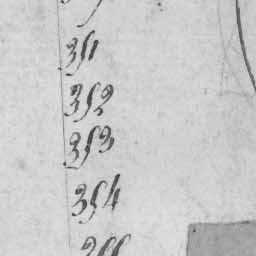 351
352
353
354